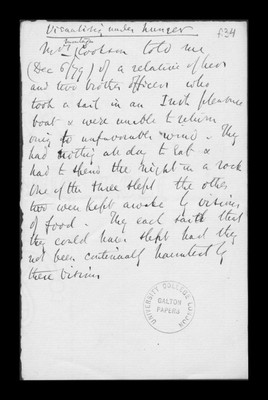 Visualising under hunger
f34
Mrs Cookson told me
(Dec 6/79) of a relative of hers
and two brother officers who
took a sail in an Irish pleasure
boat & were unable to return
owing to unfavourable wind. They
had nothing all day to eat &
had to spend the night on a rock
One of the three slept the other
two were kept awake by visions
of food. They each said that
they could have slept had they
not been continually haunted by
these visions
UNIVERSITY COLLEGE LONDON
GALTON
PAPERS